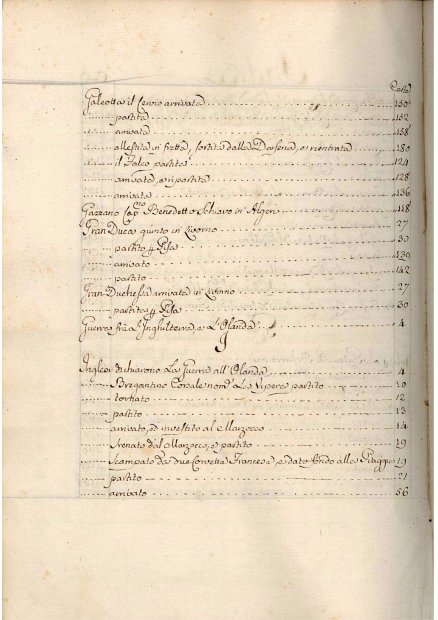 Carte
Galeotta il Cervio arrivata 150
partita 152
arrivata 158
allestita in fretta, sortita dalla Darsena, e rientrata 180
il Falco partita 124
arrivata, e ripartita 128
arrivata 136
Gazzano Benedetto Schiavo in Algeri 118
Gran Duca giunto in Livorno 27
partito p Pisa 30
arrivato 139
partito 142
Gran Duchessa arrivata in Livorno 27
partita p Pisa 30
Guerra frà l'Inghilterra, e l'Olanda 4
Inglesi dichiarono La Guerra all'Olanda 4
Bregantino Corsale nom.º La Vipera partito 10
tortiato 12
partito 13
arrivato, ed investito al Marzocco 14
Srenato dal Marzocco, e partito 19
Scampato da due Corvette Francesi, e dato fondo alla Piaggia 19
partito 21
arrivato 56